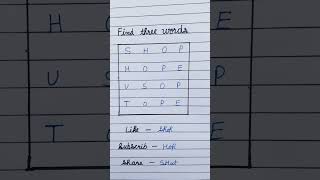 Find three words
S H O P
H O P E
U S O P
T O P E
Like - Shop
Subscrib - Hope
Share - Shut